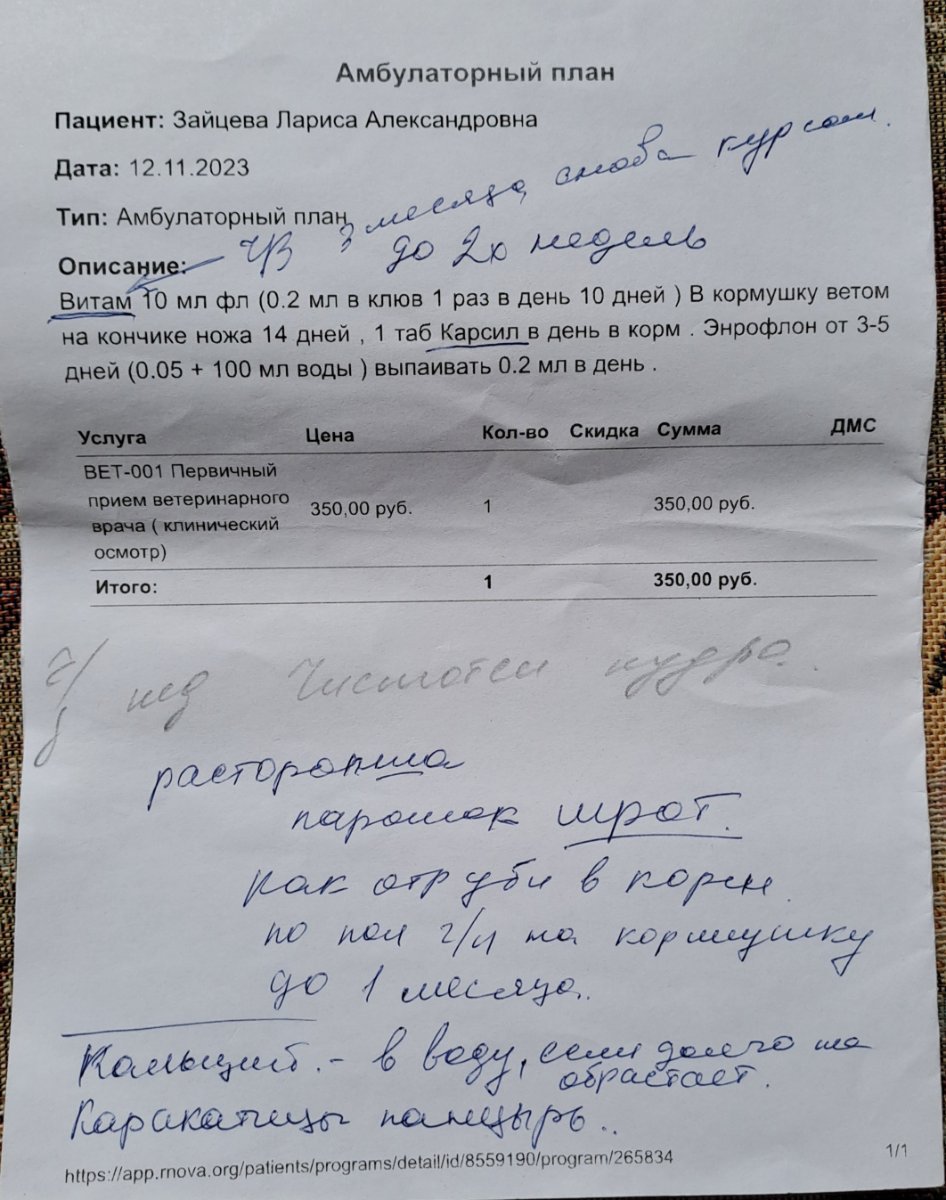 Амбулаторный план
Пациент: Зайцева Лариса Александровна
Дата: 12.11.2023
Тип: Амбулаторный план
чз 3 месяца снова курсом.
до 2х недель
Описание:
Витам 10 мл фл (0.2 мл в клюв 1 раз в день 10 дней ) В кормушку ветом
на кончике ножа 14 дней , 1 таб Карсил в день в корм . Энрофлон от 3-5
дней (0.05 + 100 мл воды ) выпаивать 0.2 мл в день .
Услуга Цена Кол-во Скидка Сумма ДМС
ВЕТ-001 Первичный
прием ветеринарного
врача ( клинический
осмотр)
350,00 руб. 1 350,00 руб.
Итого: 1 350,00 руб.
Чистотел пудра.
расторопша
парошок шрот.
как отруби в корм.
по пол ч/л на кормушку
до 1 месяца.
Кальций. - в воду, если долго не
обрастает.
Каракатицы панцырь..
https://app.rnova.org/patients/programs/detail/id/8559190/program/265834
1/1